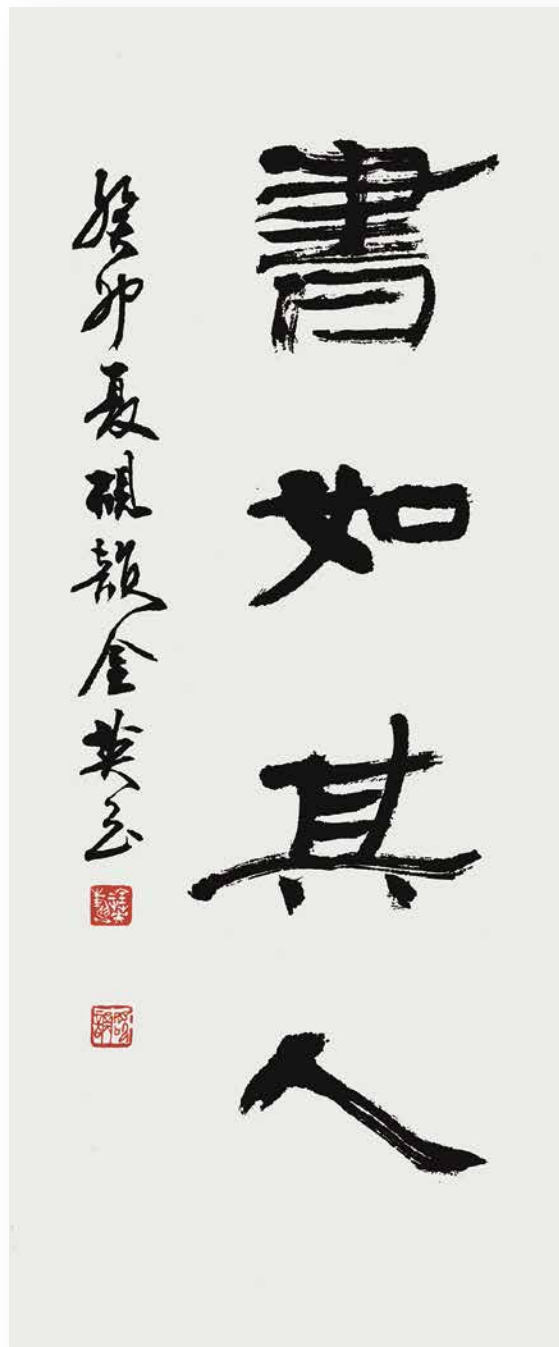 書如其人
癸卯夏硯韻金英玉